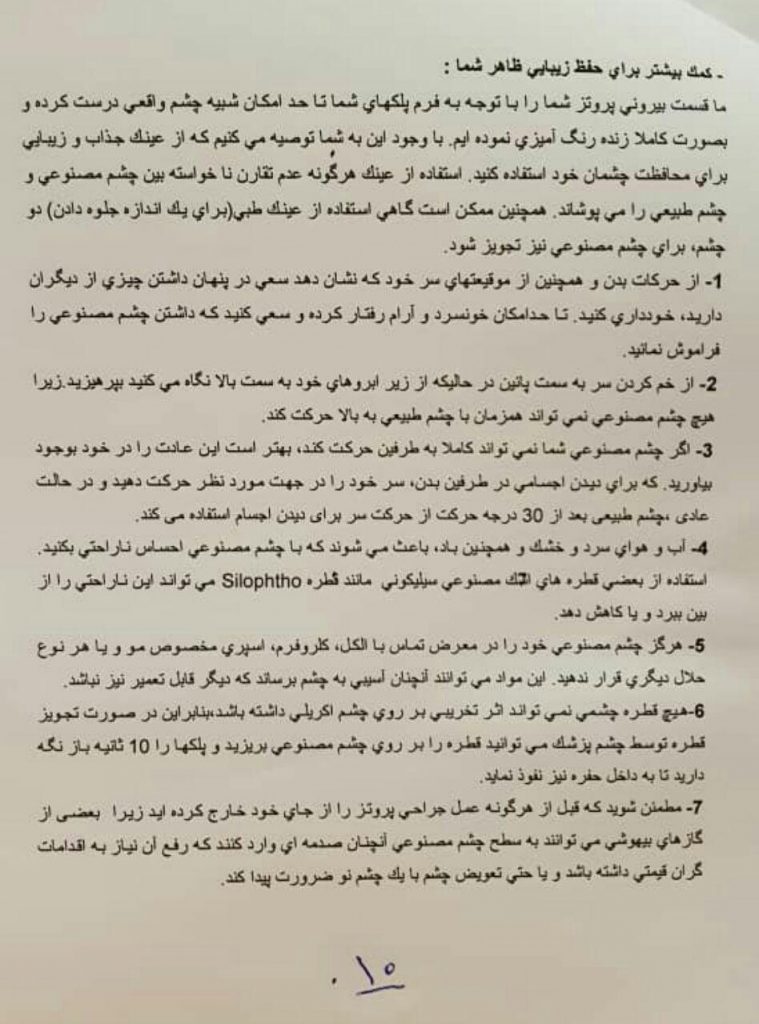 - كمك بيشتر براي حفظ زيبايي ظاهر شما :
ما قسمت بيروني پروتز شما را با توجه به فرم پلكهاي شما تا حد امكان شبيه چشم واقعي درست كرده و
بصورت كاملا زنده رنگ آميزي نموده ايم. با وجود اين به شما توصيه مي كنيم كه از عينك جذاب و زيبايي
براي محافظت چشمان خود استفاده كنيد. استفاده از عينك هرگونه عدم تقارن نا خواسته بين چشم مصنوعي و
چشم طبيعي را مي پوشاند. همچنين ممكن است گاهي استفاده از عينك طبي(براي يك اندازه جلوه دادن) دو
چشم، براي چشم مصنوعي نيز تجويز شود.
1- از حركات بدن و همچنين از موقيعتهاي سر خود كه نشان دهد سعي در پنهان داشتن چيزي از ديگران
داريد، خودداري كنيد. تا حدامكان خونسرد و آرام رفتار كرده و سعي كنيد كه داشتن چشم مصنوعي را
فراموش نمائيد.
2- از خم كردن سر به سمت پائين در حاليكه از زير ابروهاي خود به سمت بالا نگاه مي كنيد بپرهيزيد.زيرا
هيچ چشم مصنوعي نمي تواند همزمان با چشم طبيعي به بالا حركت كند.
3- اگر چشم مصنوعي شما نمي تواند كاملا به طرفين حركت كند، بهتر است اين عادت را در خود بوجود
بياوريد. كه براي ديدن اجسامي در طرفين بدن، سر خود را در جهت مورد نظر حركت دهيد و در حالت
عادی ،چشم طبیعی بعد از 30 درجه حرکت از حرکت سر برای دیدن اجسام استفاده می کند.
4- آب و هواي سرد و خشك و همچنين باد، باعث مي شوند كه با چشم مصنوعي احساس ناراحتي بكنيد.
استفاده از بعضي قطره هاي مصنوعي سيليكوني مانند قطره Silophtho مي تواند اين ناراحتي را از
بين ببرد و يا كاهش دهد.
5- هرگز چشم مصنوعي خود را در معرض تماس با الكل، كلروفرم، اسپري مخصوص مو و يا هر نوع
حلال ديگري قرار ندهيد. اين مواد مي توانند آنچنان آسيبي به چشم برساند كه ديگر قابل تعمير نيز نباشد.
6-هيچ قطره چشمي نمي تواند اثر تخريبي بر روي چشم اكريلي داشته باشد،بنابراين در صورت تجويز
قطره توسط چشم پزشك مي توانيد قطره را بر روي چشم مصنوعي بريزيد و پلكها را 10 ثانيه باز نگه
داريد تا به داخل حفره نيز نفوذ نمايد.
7- مطمئن شويد كه قبل از هرگونه عمل جراحي پروتز را از جاي خود خارج كرده ايد زيرا بعضی از
گازهاي بيهوشي مي توانند به سطح چشم مصنوعي آنچنان صدمه اي وارد كنند كه رفع آن نياز به اقدامات
گران قيمتي داشته باشد و يا حتي تعويض چشم با يك چشم نو ضرورت پيدا كند.
۱۰